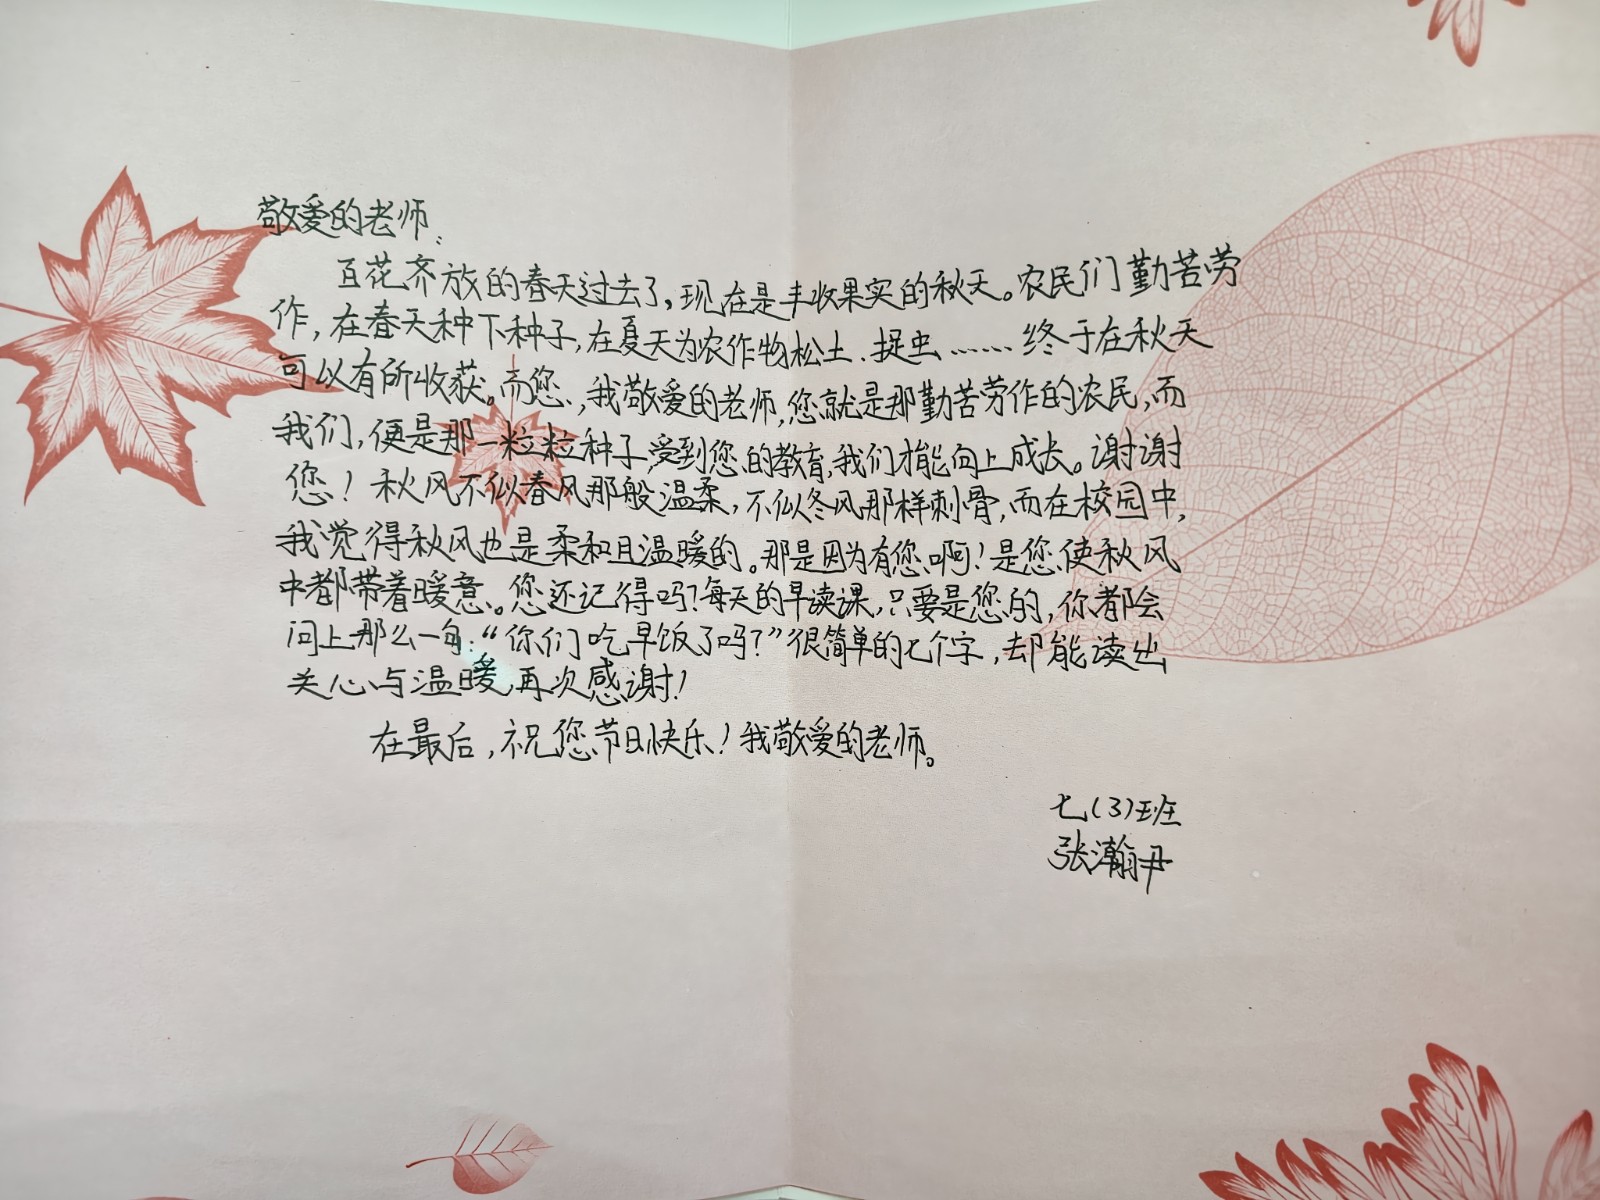 敬爱的老师:
百花齐放的春天过去了,现在是丰收果实的秋天。农民们勤苦劳
作,在春天种下种子,在夏天为农作物松土、捉虫……终于在秋天
可以有所收获。而您,我敬爱的老师,您就是那勤苦劳作的农民,而
我们,便是那一粒粒种子,受到您的教育,我们才能向上成长。谢谢
您!秋风不似春风那般温柔,不似冬风那样刺骨,而在校园中,
我觉得秋风也是柔和且温暖的。那是因为有您啊!是您使秋风
中都带着暖意。您还记得吗?每天的早读课,只要是您的,你都会
问上那么一句:“你们吃早饭了吗?”很简单的七个字,却能读出
关心与温暖,再次感谢!
在最后,祝您节日快乐!我敬爱的老师。
七(3)班
张瀚尹